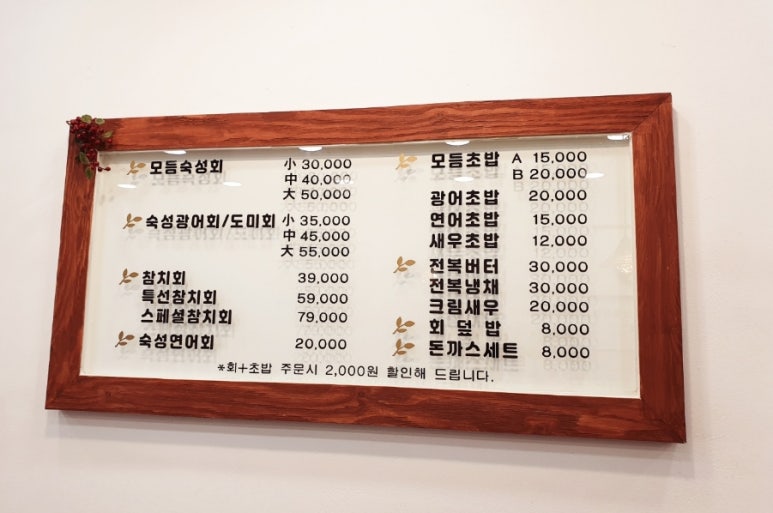 모듬숙성회 小 30,000
中 40,000
大 50,000
숙성광어회/도미회 小 35,000
中 45,000
大 55,000
참치회 39,000
특선참치회 59,000
스페셜참치회 79,000
숙성연어회 20,000
모듬초밥 A 15,000
B 20,000
광어초밥 20,000
연어초밥 15,000
새우초밥 12,000
전복버터 30,000
전복냉채 30,000
크림새우 20,000
회 덮 밥 8,000
돈까스세트 8,000
*회+초밥 주문시 2,000원 할인해 드립니다.